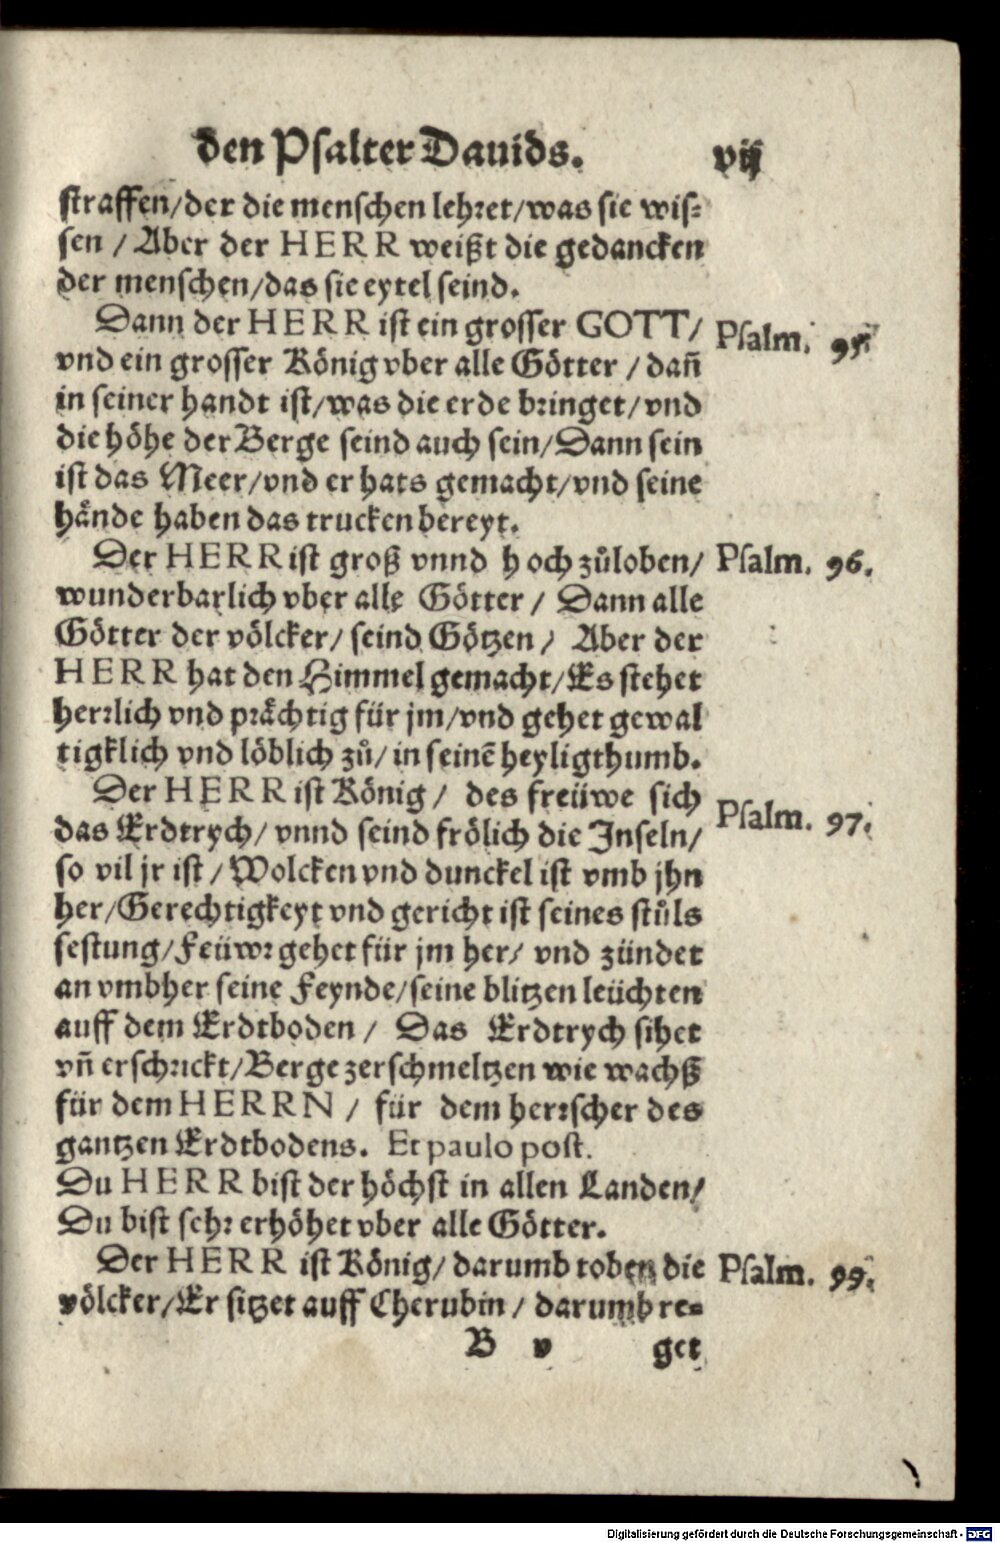 den Psalter Dauids. vij
straffen/der die menschen lehret/was sie wis⸗
sen / Aber der HERR weißt die gedancken
der menschen/das sie eytel seind.
Dann der HERR ist ein grosser GOTT/ Psalm. 95.
vnd ein grosser König vber alle Götter / dañ
in seiner handt ist/was die erde bringet/vnd
die höhe der Berge seind auch sein/Dann sein
ist das Meer/vnd er hats gemacht/vnd seine
hände haben das trucken bereyt.
Der HERR ist groß vnnd hoch zůloben/ Psalm. 96.
wunderbarlich vber alle Götter / Dann alle
Götter der völcker/ seind Götzen / Aber der
HERR hat den Himmel gemacht/Es stehet
herrlich vnd prächtig für jm/vnd gehet gewal
tigklich vnd löblich zů/ in seinē heyligthumb.
Der HERR ist König / des freüwe sich
das Erdtrych/ vnnd seind frölich die Inseln/ Psalm. 97.
so vil jr ist / Wolcken vnd dunckel ist vmb jhn
her/Gerechtigkeyt vnd gericht ist seines stůls
festung/Feüwr gehet für jm her/ vnd zündet
an vmbher seine Feynde/seine blitzen leüchten
auff dem Erdtboden / Das Erdtrych sihet
vñ erschrickt/Berge zerschmeltzen wie wachß
für dem HERRN / für dem herrscher des
gantzen Erdtbodens. Et paulo post.
Du HERR bist der höchst in allen Landen/
Du bist sehr erhöhet vber alle Götter.
Der HERR ist König/ darumb toben die Psalm. 99.
völcker/Er sitzet auff Cherubin / darumb re⸗
B v get
Digitalisierung gefördert durch die Deutsche Forschungsgemeinschaft - DFG